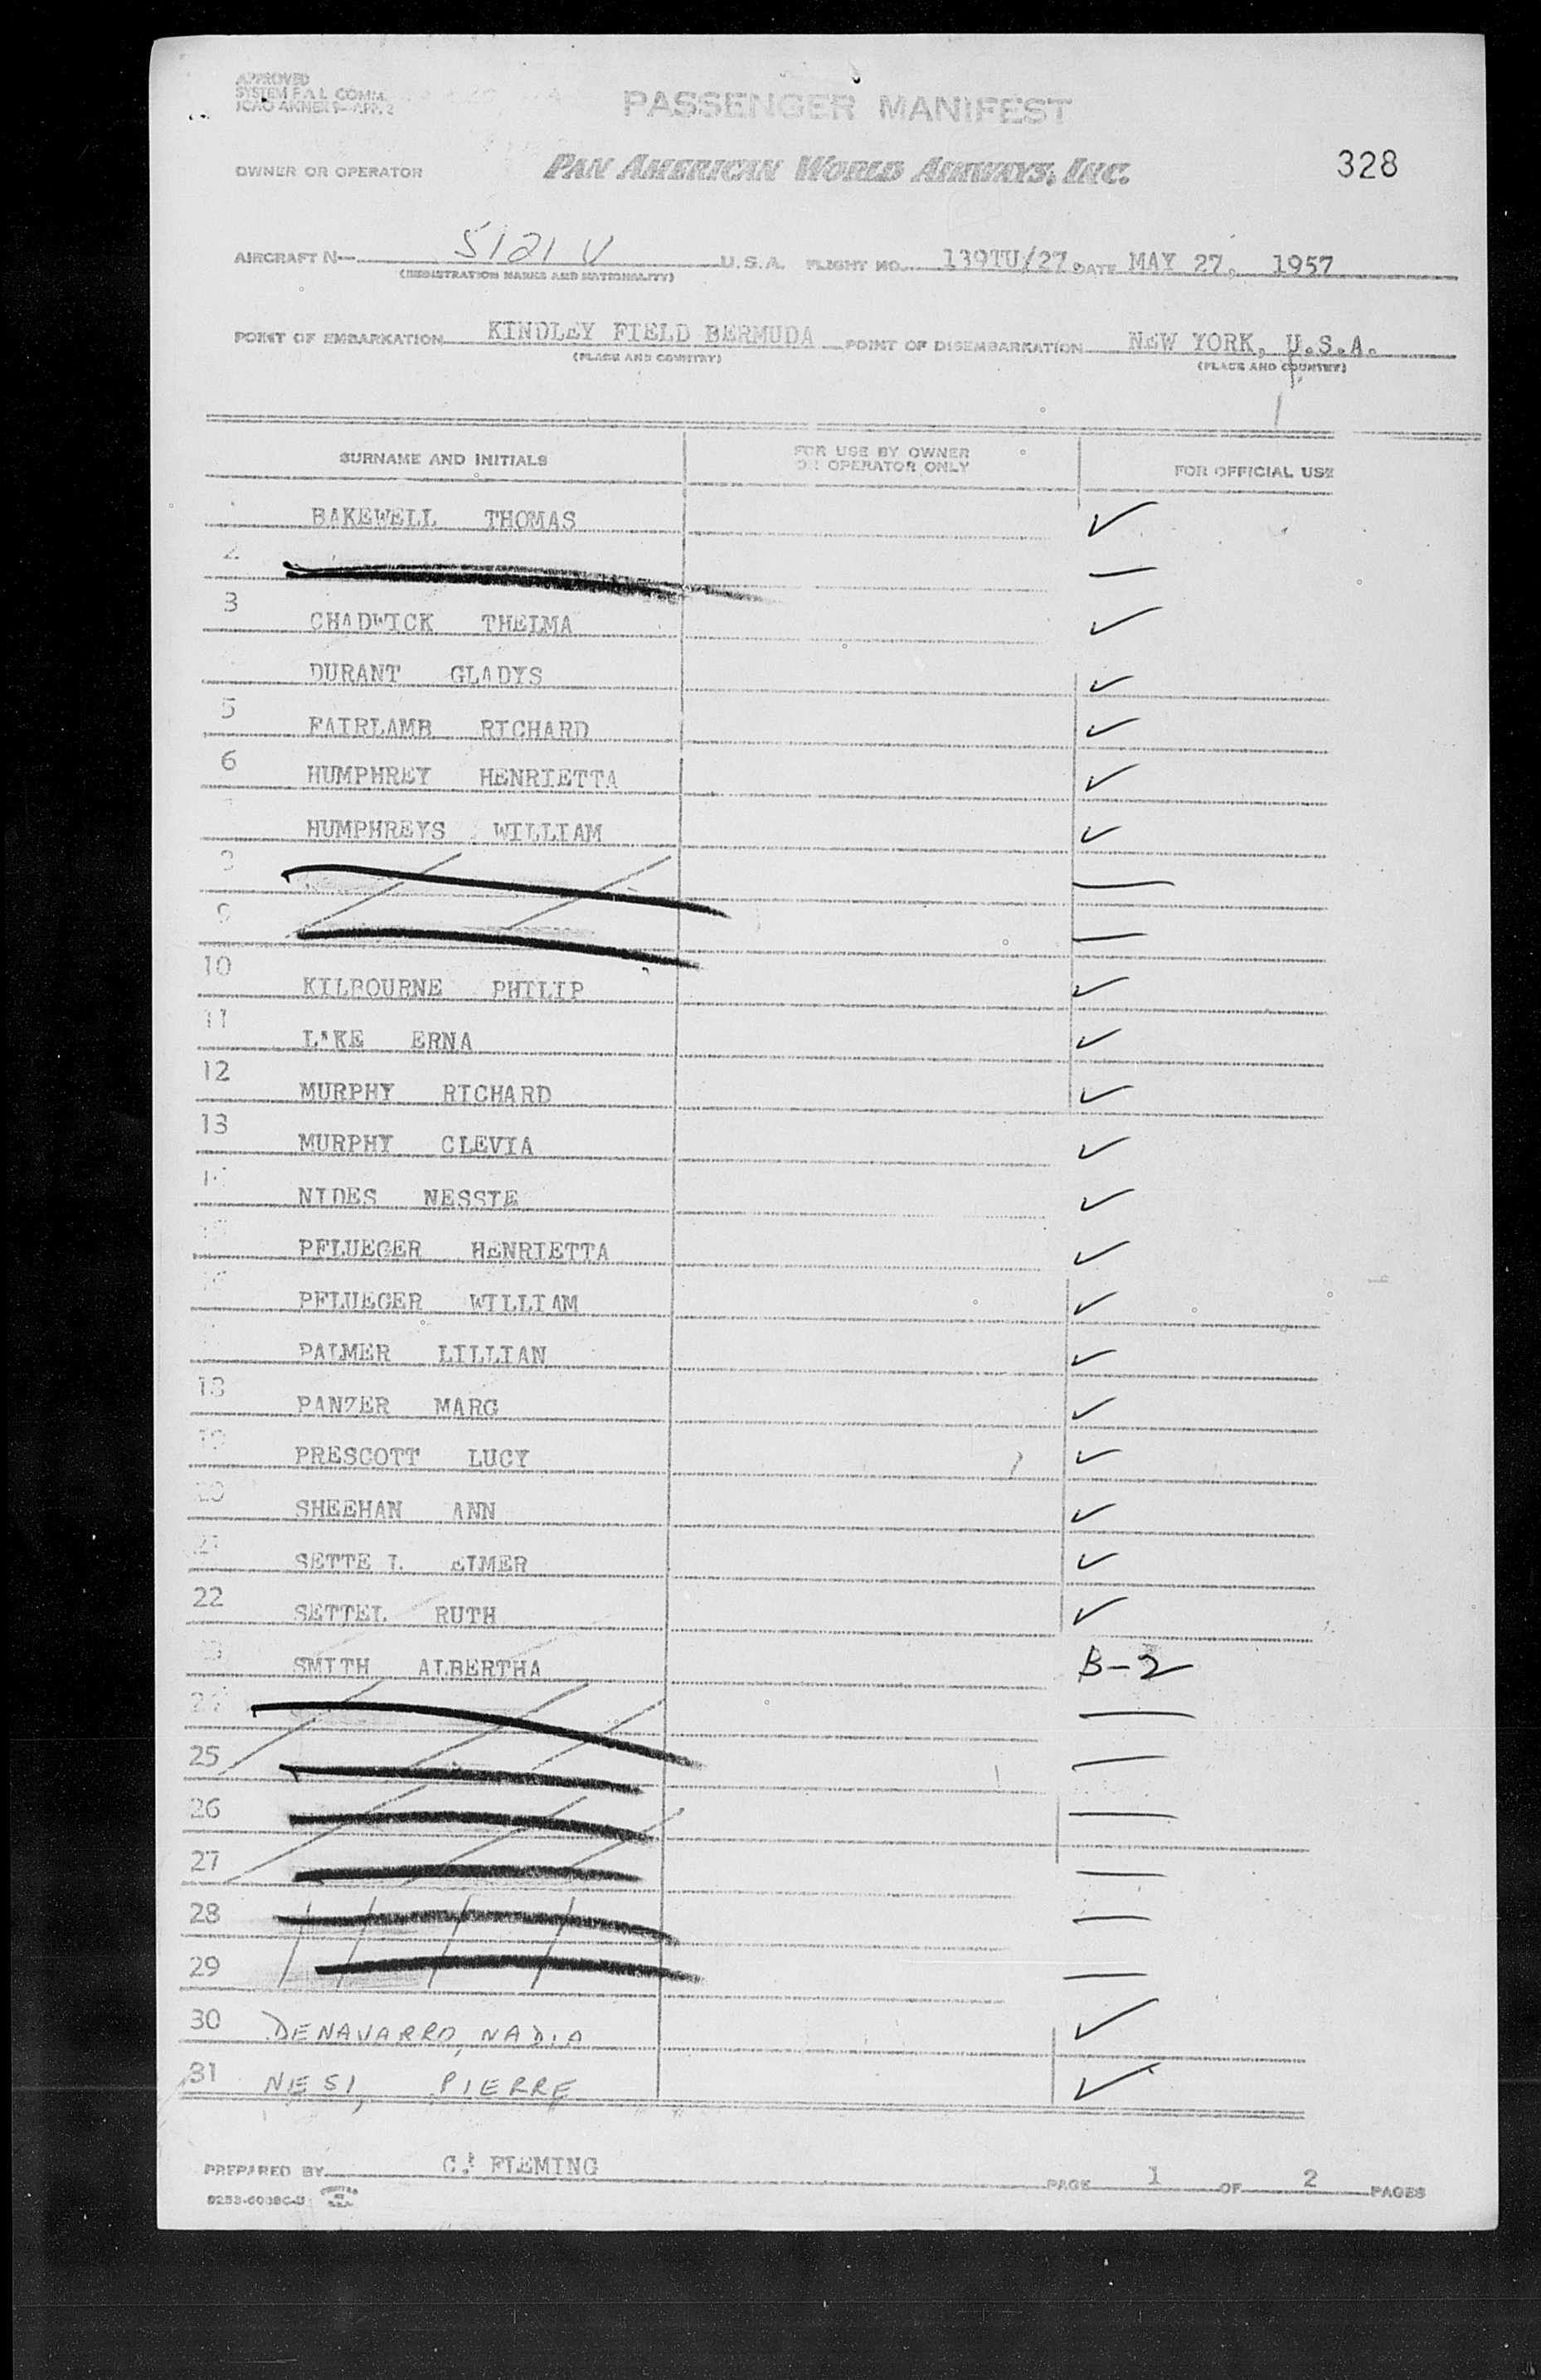 APPROVED
SYSTEM F.A.L. COMM.
ICAO ANNEX 9—APP. 2
PASSENGER MANIFEST
OWNER OR OPERATOR PAN AMERICAN WORLD AIRWAYS, INC. 328
AIRCRAFT N— 5121 V U.S.A. FLIGHT NO. 139TU/27. DATE MAY 27, 1957
(REGISTRATION MARKS AND NATIONALITY)
POINT OF EMBARKATION KINDLEY FIELD BERMUDA POINT OF DISEMBARKATION NEW YORK, U.S.A.
(PLACE AND COUNTRY) (PLACE AND COUNTRY)
SURNAME AND INITIALS FOR USE BY OWNER OR OPERATOR ONLY FOR OFFICIAL USE
BAKEWELL THOMAS ✓
2 —
3 CHADWICK THELMA ✓
DURANT GLADYS ✓
5 FAIRLAMB RICHARD ✓
6 HUMPHREY HENRIETTA ✓
HUMPHREYS WILLIAM ✓
8 —
9 —
10 KILBOURNE PHILIP ✓
11 LAKE ERNA ✓
12 MURPHY RICHARD ✓
13 MURPHY CLEVIA ✓
14 NIDES NESSIE ✓
15 PFLUEGER HENRIETTA ✓
16 PFLUEGER WILLIAM ✓
PALMER LILLIAN ✓
18 PANZER MARG ✓
19 PRESCOTT LUCY ✓
20 SHEEHAN ANN ✓
21 SETTE L ELMER ✓
22 SETTEL RUTH ✓
23 SMITH ALBERTHA B-2
24 —
25 —
26 —
27 —
28 —
29 —
30 DENAVARRO, NADIA ✓
31 NESI, PIERRE ✓
PREPARED BY C. FLEMING PAGE 1 OF 2 PAGES
PRINTED IN U.S.A.